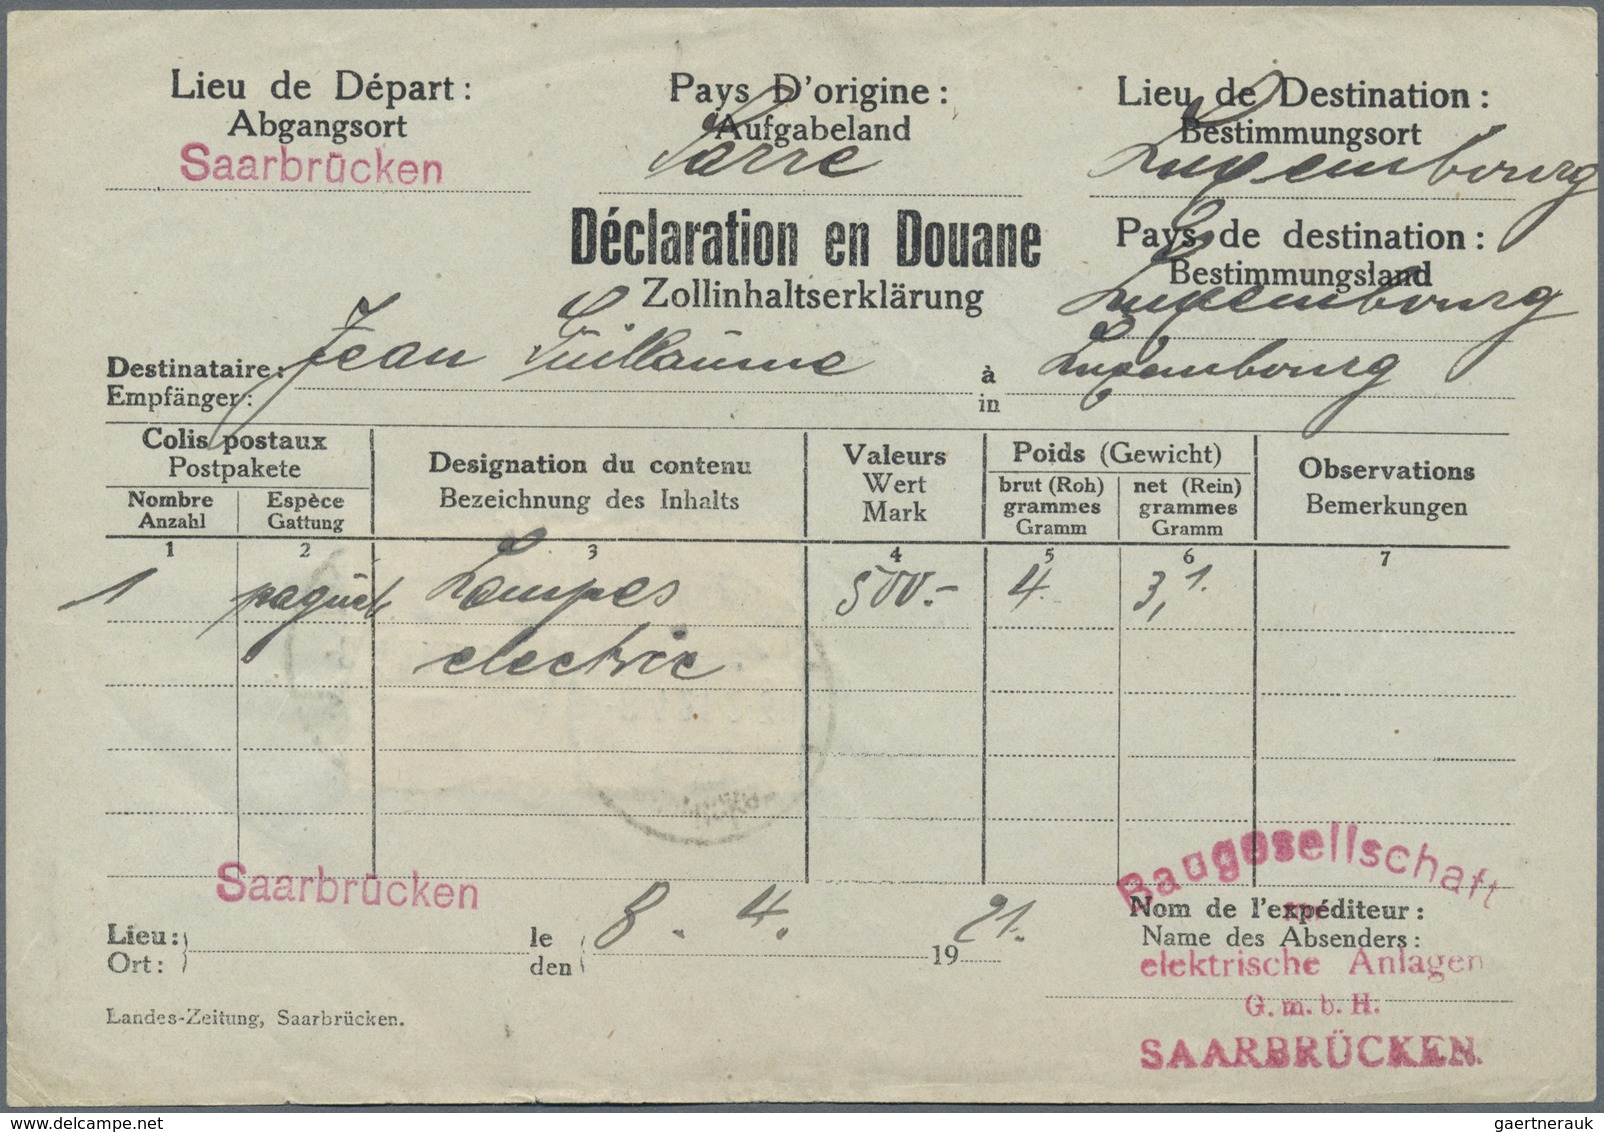 Lieu de Départ :
Abgangsort
Saarbrücken
Pays D'origine :
Aufgabeland
Sarre
Lieu de Destination :
Bestimmungsort
Luxembourg
Déclaration en Douane
Zollinhaltserklärung
Pays de destination :
Bestimmungsland
Luxembourg
Destinataire : Jean Guillaume à Luxembourg
Empfänger : in
Colis postaux
Postpakete
Nombre
Anzahl
Espèce
Gattung
Designation du contenu
Bezeichnung des Inhalts
Valeurs
Wert
Mark
Poids (Gewicht)
brut (Roh)
grammes
Gramm
net (Rein)
grammes
Gramm
Observations
Bemerkungen
1 2 3 4 5 6 7
1 paquet Lampes 500.- 4. 3,1.
electric
Saarbrücken
Lieu : le 8. 4. 1921.
Ort : den
Baugesellschaft
für
Nom de l'expéditeur :
Name des Absenders :
elektrische Anlagen
G. m. b. H.
SAARBRÜCKEN.
Landes-Zeitung, Saarbrücken.
© gaertnerauk / delcampe.net